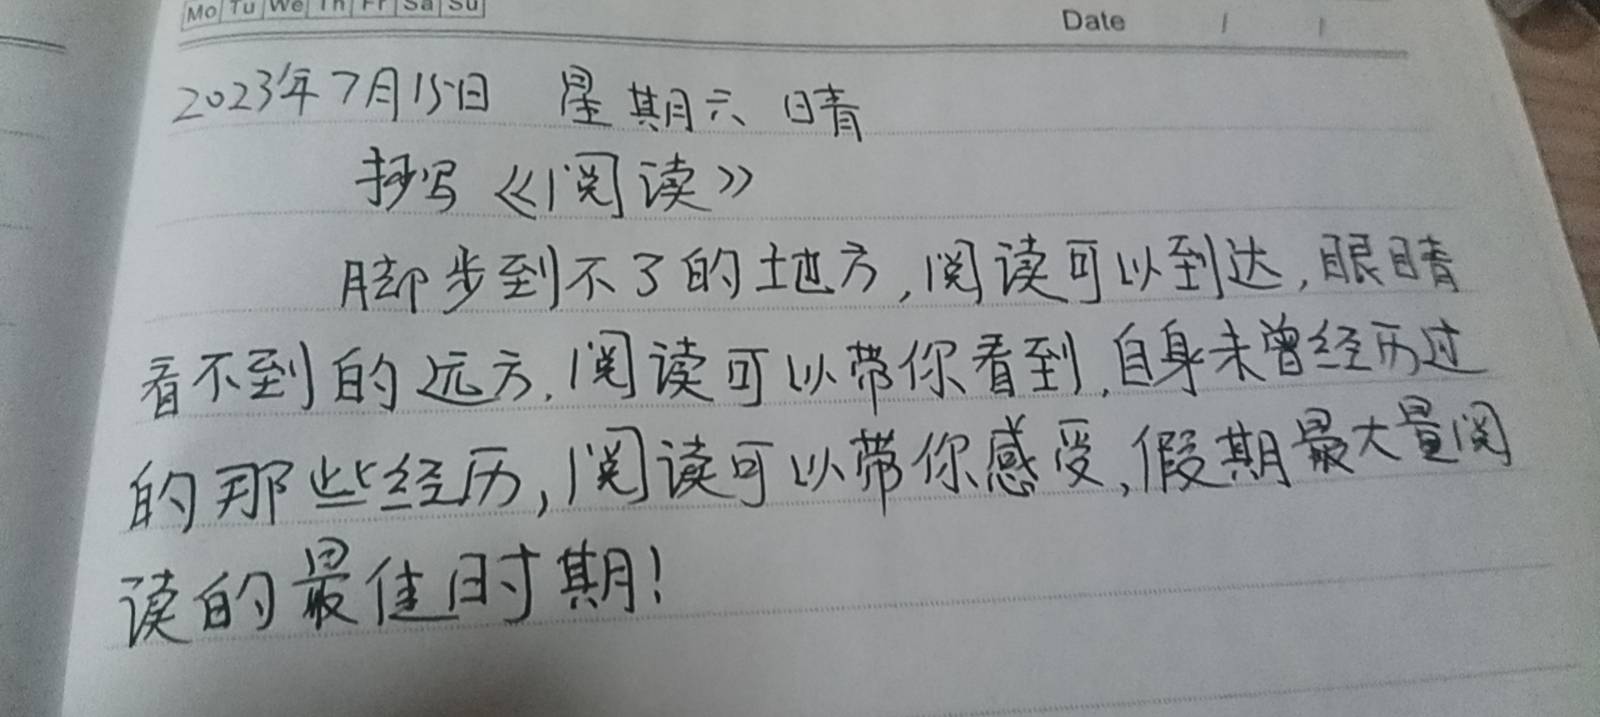 Mo Tu We Th Fr Sa Su Date / /
2023年7月15日 星期六 晴
抄写《阅读》
脚步到不了的地方,阅读可以到达,眼睛
看不到的远方,阅读可以带你看到,自身未曾经历过
的那些经历,阅读可以带你感受,假期最大量阅
读的最佳时期!